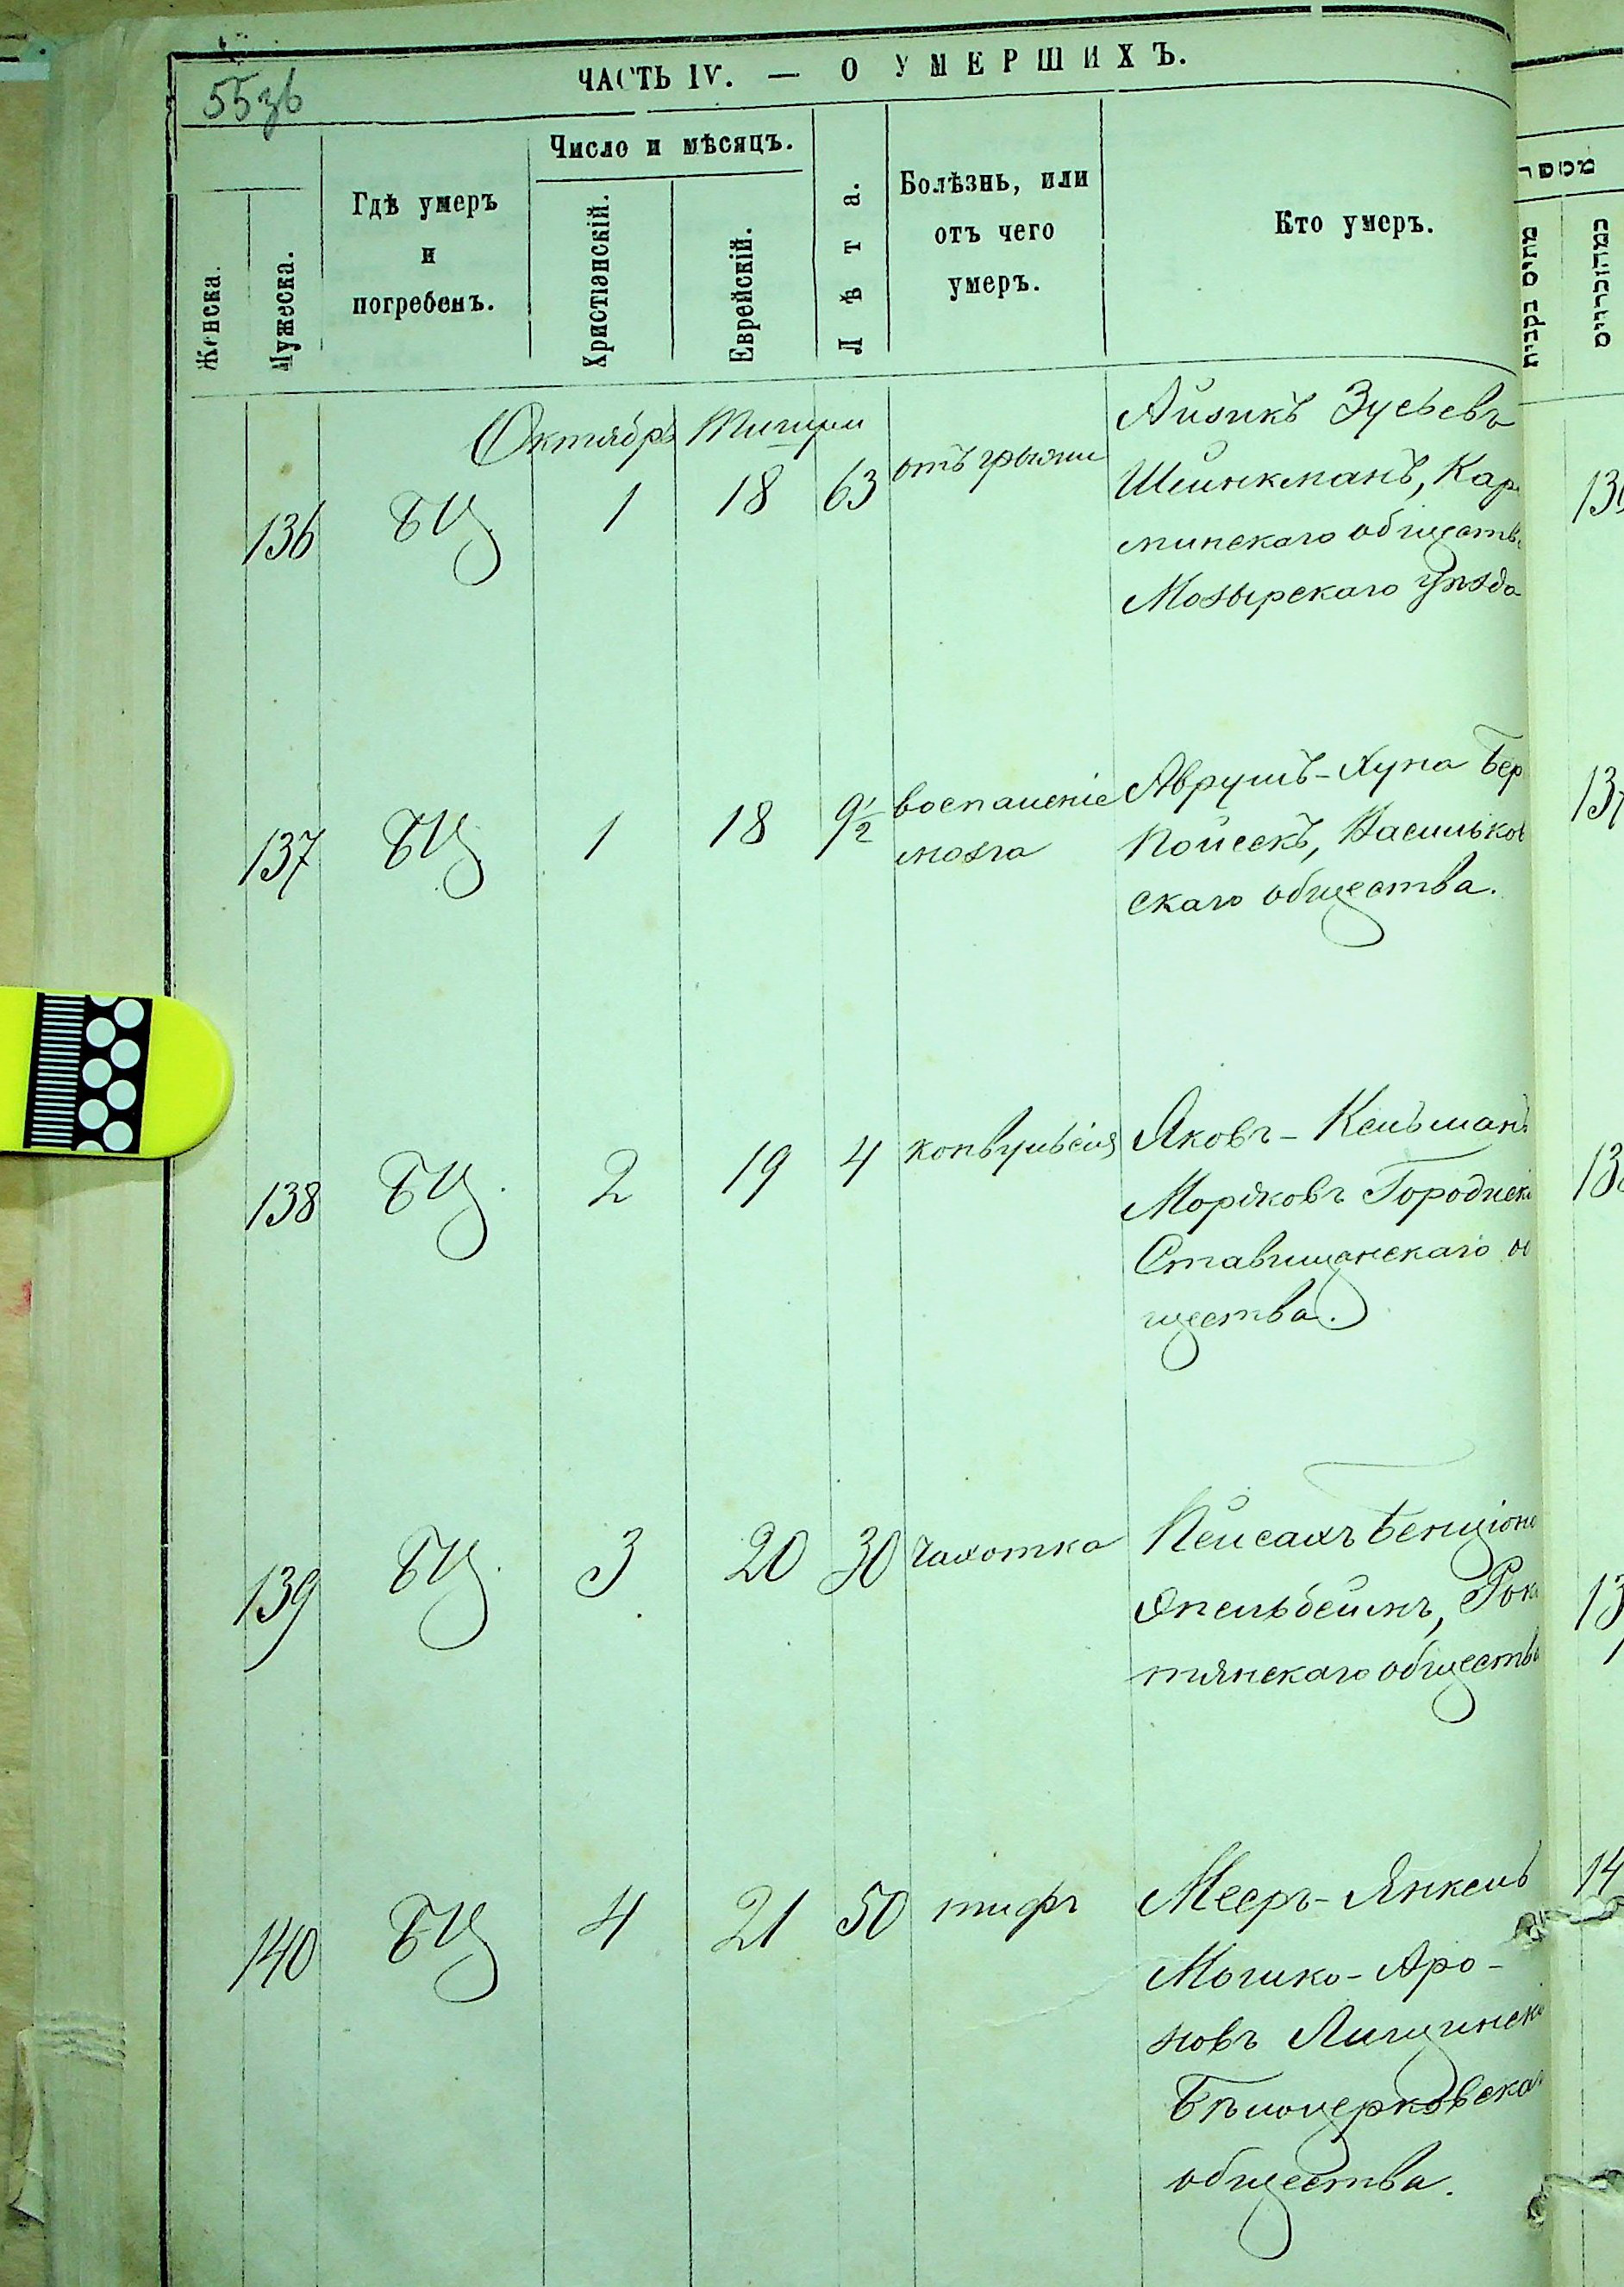 55зв
ЧАСТЬ IV. — О УМЕРШИХЪ.
Женска.
Мужеска.
Гдѣ умеръ
и
погребенъ.
Число и мѣсяцъ.
Христіанскій.
Еврейскій.
Лѣта.
Болѣзнь, или
отъ чего
умеръ.
Кто умеръ.
מספר
Октябрь Тишри
136 БЦ 1 18 63 отъ грыжи
Айзикъ Зусьевъ
Шейнкманъ, Кар
линскаго обществ
Мозырскаго уѣзда
137 БЦ 1 18 9½ воспаленіе
мозга
Аврумъ-Хуна Бер
Пойсекъ, Васильков
скаго общества.
138 БЦ. 2 19 4 конвульсія
Яковъ-Кельманъ
Морѣковъ Городиск
Ставищанскаго о
щества.
139 БЦ. 3 20 30 чахотка
Пейсахъ Бенціоно
Эпельбеймъ, Рок
тянскаго обществ
140 БЦ 4 21 50 тифъ
Мееръ-Янкель
Мошко-Аро-
новъ Лищинск
Бѣлоцерковскаг
общества.